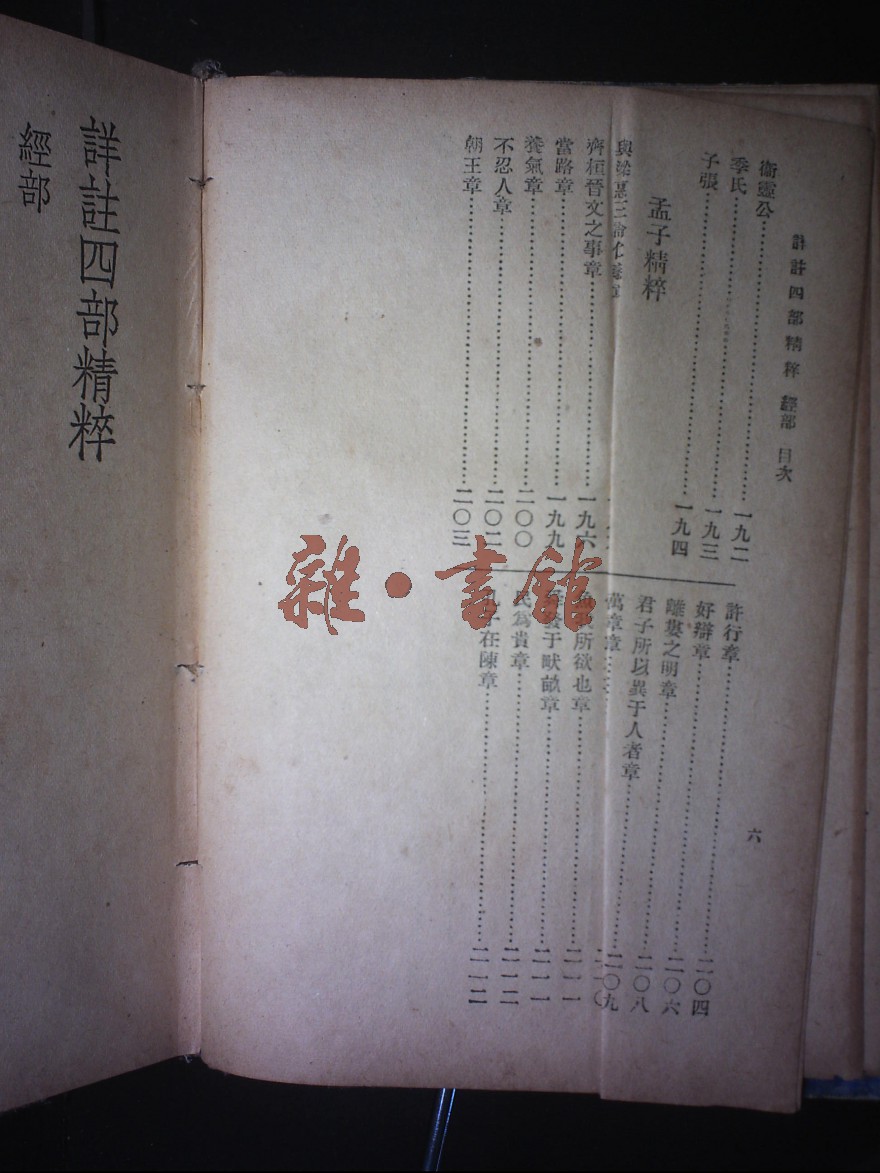 詳註四部精粹 經部 目次
衞靈公……一九二
季氏……一九三
子張……一九四
孟子精粹
齊桓晉文之事章……一九六
當路章……一九九
養氣章……二〇〇
不忍人章……二〇二
朝王章……二〇三
許行章……二〇四
好辯章……二〇六
離婁之明章……二〇八
君子所以異于人者章……二〇九
萬章章
所欲也章……二一一
發于畎畝章……二一一
民爲貴章……二一二
在陳章……二一二
六
詳註四部精粹
經部
雜·書館